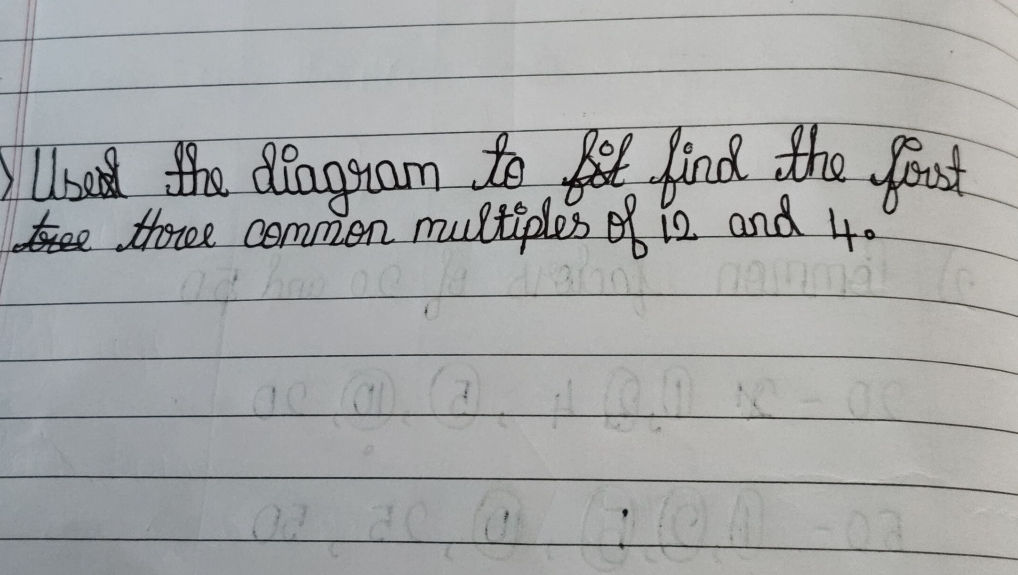 Used the diagram to find the first
three common multiples of 12 and 4.